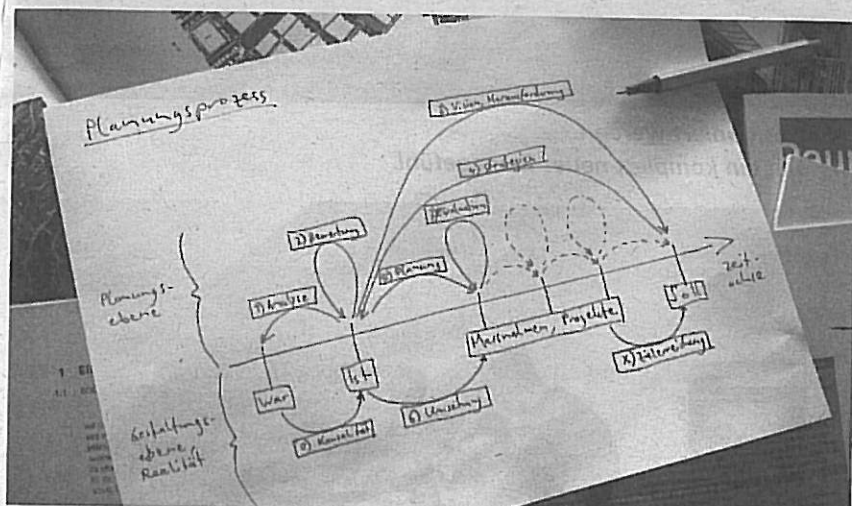 Planungsprozess
3) Vision, Herausforderung
4) Strategien
2) Bewertung
Evaluation
1) Analyse
5) Planung
Planungs-
ebene
Zeit-
achse
War
Ist
Massnahmen, Projekte
Soll
0) Kausalität
6) Umsetzung
X) Zielerreichung
Gestaltungs-
ebene,
Realität